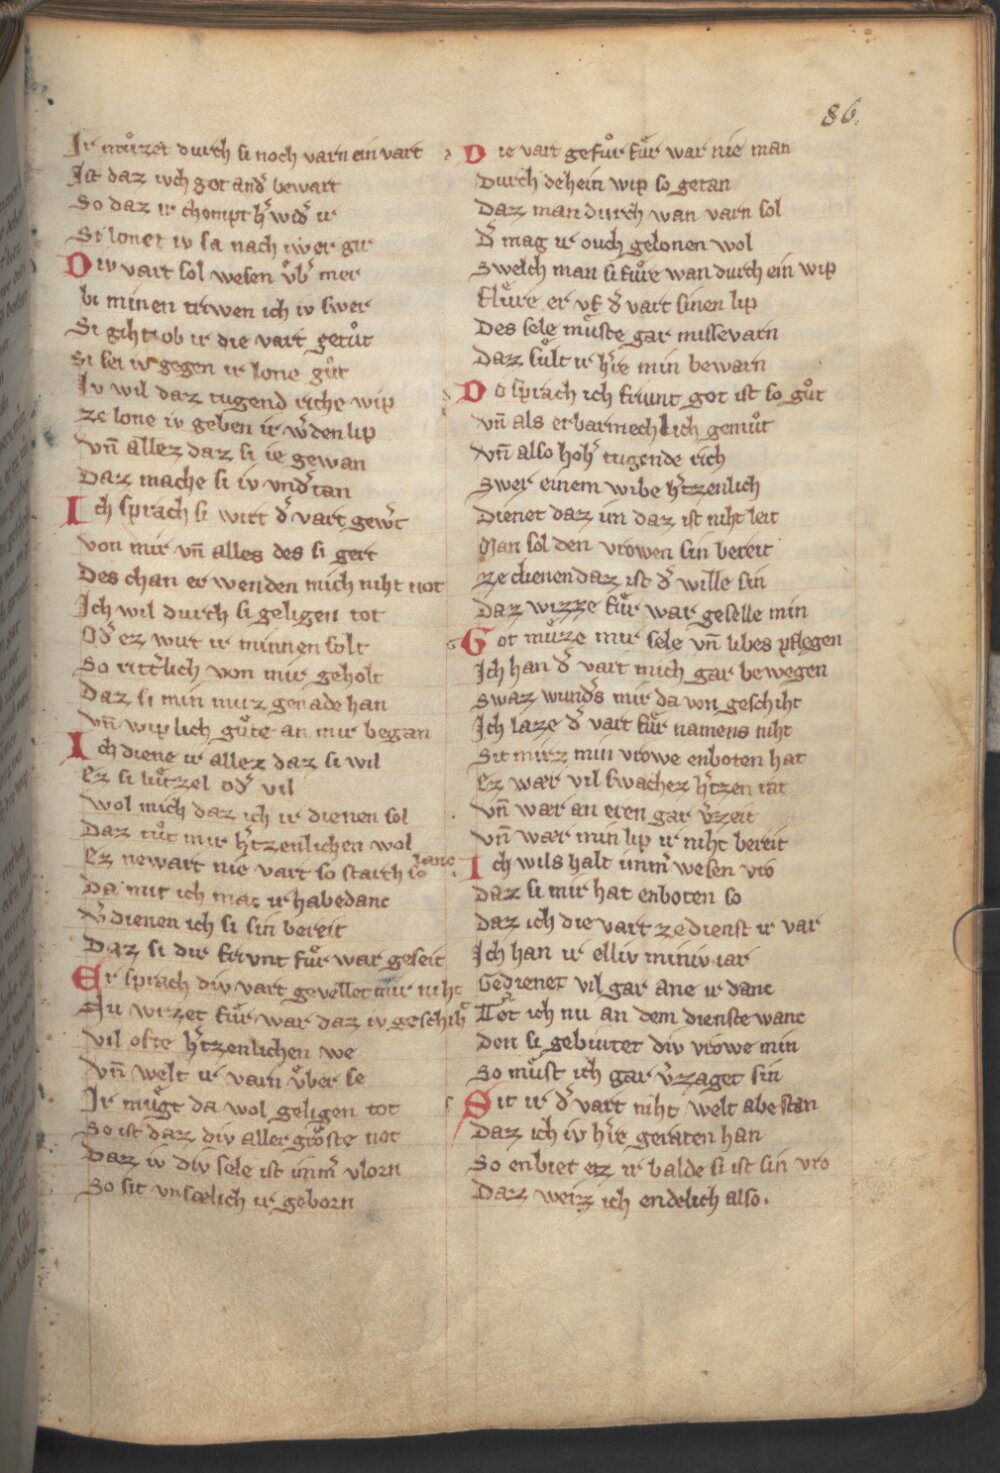 86.
Ir muͦzet durch si noch varn ein vart
Ist daz iuch got andˢ bewart
So daz ir chompt hˢ widˢ ir
Si lonet iv sa nach iwer gir
Div vart sol wesen vͤbˢ mer
bi minen triwen ich iv swer
Si giht ob ir die vart getuͦt
Si sei iv gegen ir lone guͦt
Iv wil daz tugend riche wip
ze lone iv geben ir wˢden lip
vn̄ allez daz si ie gewan
Daz mache si iv vndˢtan
Ich sprach si wirt dˢ vart gewˢt
von mir vn̄ alles des si gert
Des chan er wenden mich niht not
Ich wil durch si geligen tot
Odˢ ez wirt ir minnen solt
So rittˢlich von mir geholt
Daz si min muz genade han
vn̄ wiplich guͤte an mir began
Ich diene ir allez daz si wil
Ez si luͤtzel odˢ vil
wol mich daz ich ir dienen sol
Daz tuͦt mir hˢtzenlichen wol
Ez newart nie vart so starch so lanc
Da mit ich mac ir habedanc
vˢdienen ich si sin bereit
Daz si dir friunt fuͤr war geseit
Er sprach div vart gevellet mir niht
Nu wizzet fuͤr war daz iv geschihˢ
vil ofte hˢtzenlichen we
vn̄ welt ir varn vͤber se
Ir muͤgt da wol geligen tot
So ist daz div aller groͤste not
Daz iv div sele ist immˢ vlorn
So sit vnsælich ir geborn
Die vart gefuͦr fuͤr war nie man
Durch dehein wip so getan
Daz man durch wan varn sol
Dˢ mag ir ouch gelonen wol
Swelch man si fuͤre wan durch ein wip
Fluͤre er vf dˢ vart sinen lip
Des sele muͤste gar missevarn
Daz sult ir hˢre min bewarn
Do sprach ich friunt got ist so guͦt
vn̄ als erbarmechlich gemuͦt
vn̄ also hohˢ tugende rich
Swer einem wibe hˢtzenlich
Dienet daz im daz ist niht leit
Man sol den vrowen sin bereit
ze dienen daz ist dˢ wille sin
Daz wizze fuͤr war geselle min
Got muͤze mir sele vn̄ libes pflegen
Ich han dˢ vart mich gar bewegen
Swaz wundˢs mir da von geschiht
Ich laze dˢ vart fuͤr namens niht
Sit mirz min vrowe enboten hat
Ez wær vil swaches hˢtzen rat
vn̄ wær an eren gar vˢzeit
vn̄ wær min lip ir niht bereit
Ich wils halt immˢ wesen vro
Daz si mir hat enboten so
Daz ich die vart ze dienst ir var
Ich han ir elliv miniv iar
Gedienet vil gar ane ir danc
Tæt ich nu an dem dienste wanc
Den si gebiutet div vrowe min
So muͤst ich gar vˢzaget sin
Sit ir dˢ vart niht welt abe stan
Daz ich iv hˢre geraten han
So enbiet ez ir balde si ist sin vro
Daz weiz ich endelich also.